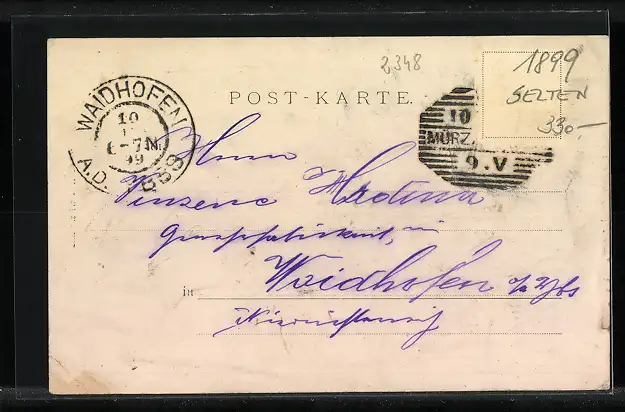 2348
1899
SELTEN
330.-
POST-KARTE.
WAIDHOFEN
10
6-7N.
99
A.D.
10
MÜRZ.
9.V
Herrn
Vinzenz Hrdina
in Waidhofen a/Ybs